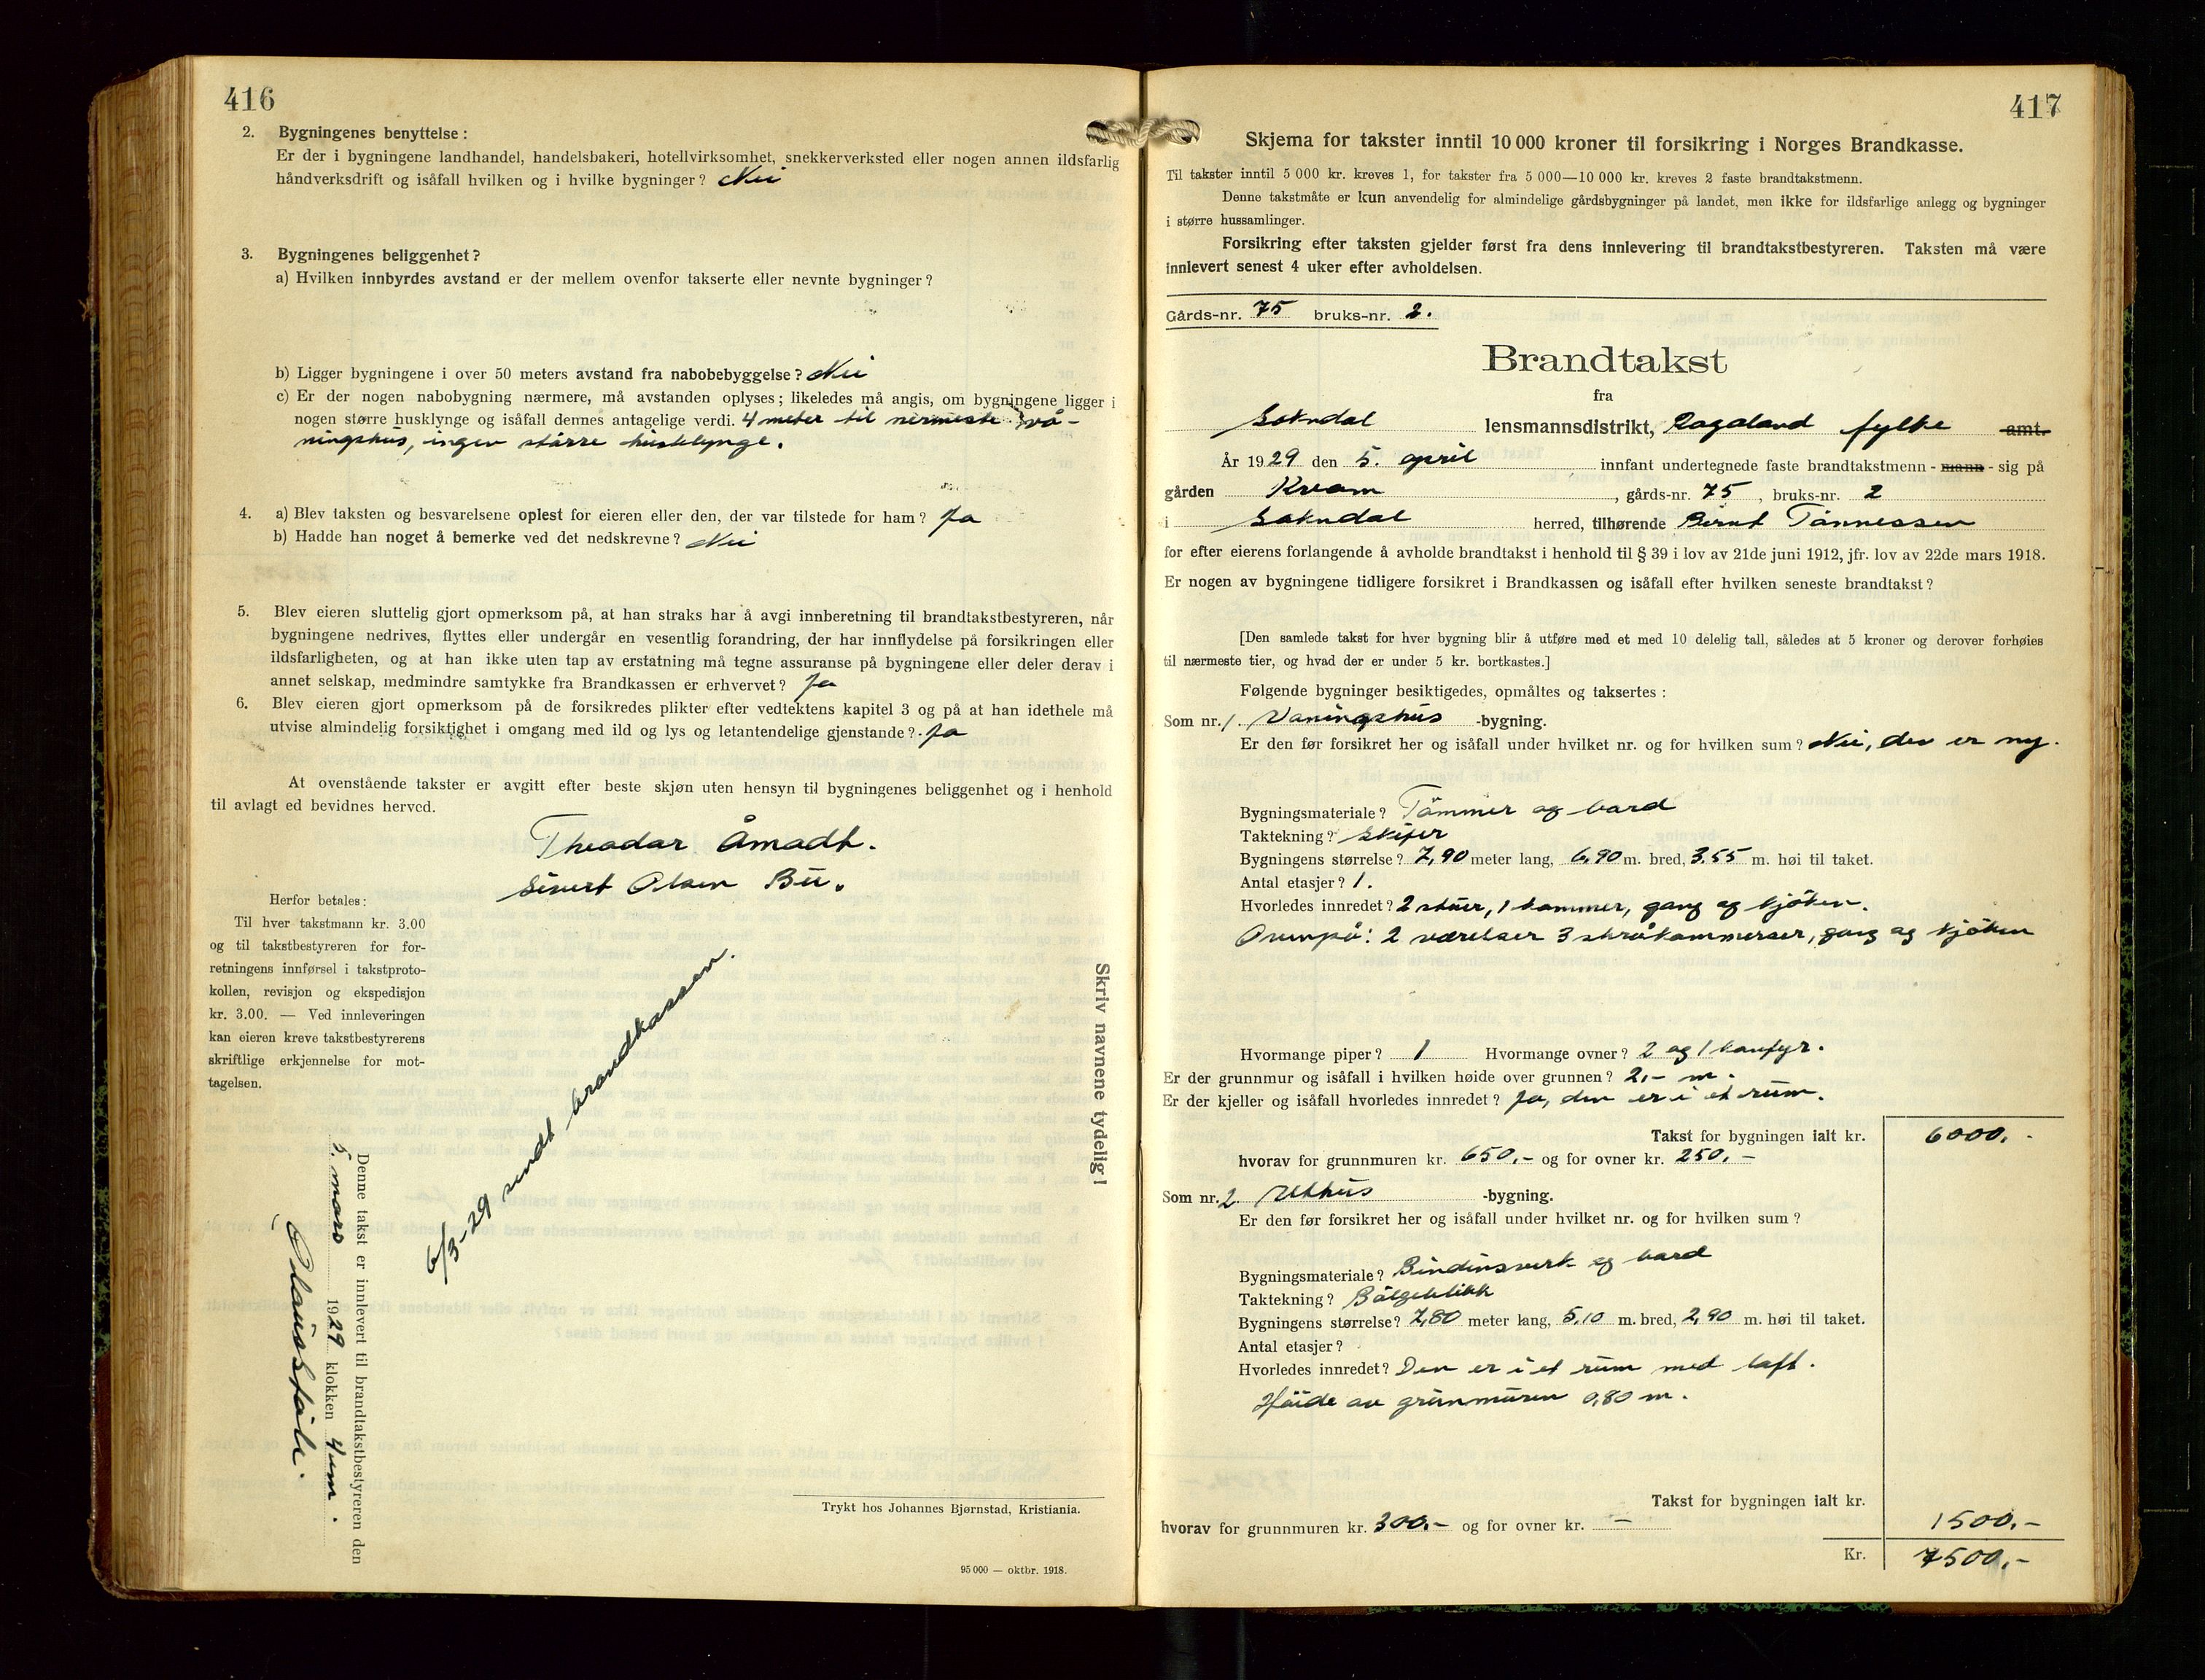 416
2. Bygningenes benyttelse:
Er der i bygningene landhandel, handelsbakeri, hotellvirksomhet, snekkerverksted eller nogen annen ildsfarlig
håndverksdrift og isåfall hvilken og i hvilke bygninger? Nei
3. Bygningenes beliggenhet?
a) Hvilken innbyrdes avstand er der mellem ovenfor takserte eller nevnte bygninger?
b) Ligger bygningene i over 50 meters avstand fra nabobebyggelse? Nei
c) Er der nogen nabobygning nærmere, må avstanden oplyses; likeledes må angis, om bygningene ligger i
nogen større husklynge og isåfall dennes antagelige verdi. 4 meter til nermeste vå-
ningshus, ingen större husklynge.
4. a) Blev taksten og besvarelsene oplest for eieren eller den, der var tilstede for ham? Ja
b) Hadde han noget å bemerke ved det nedskrevne? Nei
5. Blev eieren sluttelig gjort opmerksom på, at han straks har å avgi innberetning til brandtakstbestyreren, når
bygningene nedrives, flyttes eller undergår en vesentlig forandring, der har innflydelse på forsikringen eller
ildsfarligheten, og at han ikke uten tap av erstatning må tegne assuranse på bygningene eller deler derav i
annet selskap, medmindre samtykke fra Brandkassen er erhvervet? Ja
6. Blev eieren gjort opmerksom på de forsikredes plikter efter vedtektens kapitel 3 og på at han idethele må
utvise almindelig forsiktighet i omgang med ild og lys og letantendelige gjenstande? Ja
At ovenstående takster er avgitt efter beste skjøn uten hensyn til bygningenes beliggenhet og i henhold
til avlagt ed bevidnes herved.
Theodor Åmodt.
Sivert Olsen Bu.
Herfor betales:
Til hver takstmann kr. 3.00
og til takstbestyreren for for-
retningens innførsel i takstproto-
kollen, revisjon og ekspedisjon
kr. 3.00. — Ved innleveringen
kan eieren kreve takstbestyrerens
skriftlige erkjennelse for mot-
tagelsen.
6/3-29 sendt brandkassen.
Skriv navnene tydelig!
Denne takst er innlevert til brandtakstbestyreren den
5. mars 1929 klokken 4 em.
Trykt hos Johannes Bjørnstad, Kristiania.
95 000 — oktbr. 1918.
417
Skjema for takster inntil 10 000 kroner til forsikring i Norges Brandkasse.
Til takster inntil 5 000 kr. kreves 1, for takster fra 5 000—10 000 kr. kreves 2 faste brandtakstmenn.
Denne takstmåte er kun anvendelig for almindelige gårdsbygninger på landet, men ikke for ildsfarlige anlegg og bygninger
i større hussamlinger.
Forsikring efter taksten gjelder først fra dens innlevering til brandtakstbestyreren. Taksten må være
innlevert senest 4 uker efter avholdelsen.
Gårds-nr. 75 bruks-nr. 2.
Brandtakst
fra
Sokndal lensmannsdistrikt, Rogaland fylke amt.
År 1929 den 5. april innfant undertegnede faste brandtakstmenn - mann - sig på
gården Kvam, gårds-nr. 75, bruks-nr. 2
i Sokndal herred, tilhørende Bernt Tönnessen
for efter eierens forlangende å avholde brandtakst i henhold til § 39 i lov av 21de juni 1912, jfr. lov av 22de mars 1918.
Er nogen av bygningene tidligere forsikret i Brandkassen og isåfall efter hvilken seneste brandtakst?
[Den samlede takst for hver bygning blir å utføre med et med 10 delelig tall, således at 5 kroner og derover forhøies
til nærmeste tier, og hvad der er under 5 kr. bortkastes.]
Følgende bygninger besiktigedes, opmåltes og taksertes:
Som nr. 1. Vaningshus -bygning.
Er den før forsikret her og isåfall under hvilket nr. og for hvilken sum? Nei, den er ny.
Bygningsmateriale? Tömmer og bord
Taktekning? Skifer
Bygningens størrelse? 7,90 meter lang, 6,90 m. bred, 3,55 m. høi til taket.
Antal etasjer? 1.
Hvorledes innredet? 2 stuer, 1 kammer, gang og kjöken.
Ovenpå: 2 værelser 3 skråkammerser, gang og kjöken
Hvormange piper? 1 Hvormange ovner? 2 og 1 komfyr.
Er der grunnmur og isåfall i hvilken høide over grunnen? 2,- m.
Er der kjeller og isåfall hvorledes innredet? Ja, den er i et rum.
Takst for bygningen ialt kr. 6000,-
hvorav for grunnmuren kr. 650,- og for ovner kr. 250,-
Som nr. 2. Uthus -bygning.
Er den før forsikret her og isåfall under hvilket nr. og for hvilken sum?
Bygningsmateriale? Bindinsverk og bord
Taktekning? Bölgeblikk
Bygningens størrelse? 7,80 meter lang, 5,10 m. bred, 2,90 m. høi til taket.
Antal etasjer?
Hvorledes innredet? Den er i et rum med loft.
Höide av grunmuren 0,80 m.
Takst for bygningen ialt kr.
hvorav for grunnmuren kr. 300,- og for ovner kr. - 1500,-
Kr. 7500,-